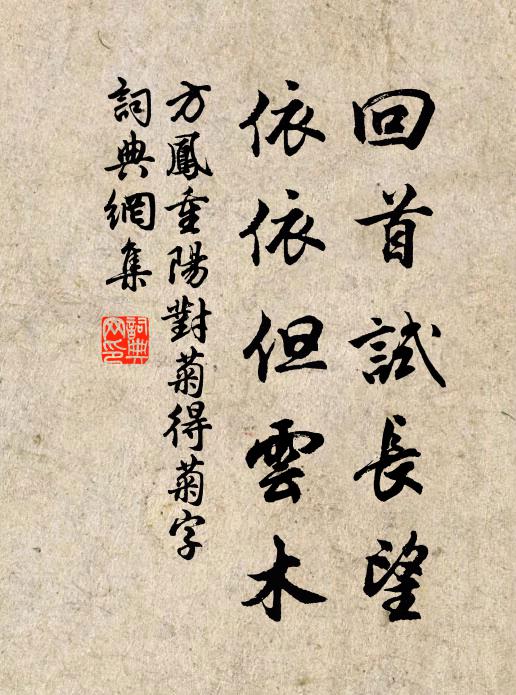 回首試長望
依依但雲木
方鳳重陽對菊得菊字
詞典網集
詞典
网印